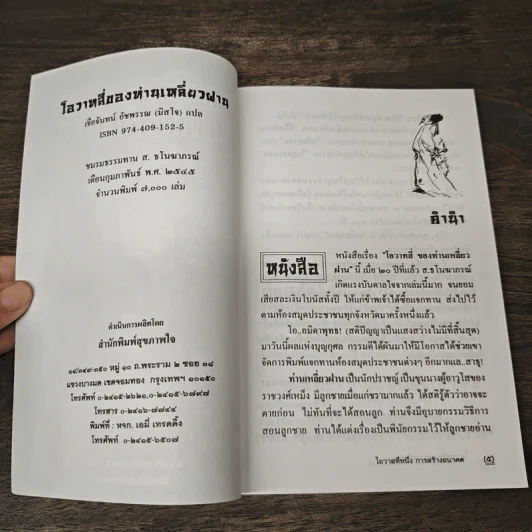 โอวาทสี่ของท่านเหลี่ยวฝาน
เจือจันทน์ อัชพรรณ (มิสโจ) แปล
ISBN 974-409-152-5
ชมรมธรรมทาน ส. ธโนฆาภรณ์
เดือนกุมภาพันธ์ พ.ศ. ๒๕๔๕
จำนวนพิมพ์ ๗,๐๐๐ เล่ม
ดำเนินการผลิตโดย
สำนักพิมพ์สุขภาพใจ
๑๔/๓๔๙-๓๕๐ หมู่ ๑๐ ถ.พระราม ๒ ซอย ๓๘
แขวงบางมด เขตจอมทอง กรุงเทพฯ ๑๐๑๕๐
โทรศัพท์ ๐-๒๔๑๕-๒๖๒๑, ๐-๒๔๑๕-๖๗๙๗
โทรสาร ๐-๒๔๑๖-๗๗๔๔
พิมพ์ที่ : หจก. เอมี่ เทรดดิ้ง
โทรศัพท์ ๐-๒๔๑๕-๖๕๐๗
คำนำ
หนังสือ
หนังสือเรื่อง "โอวาทสี่ ของท่านเหลี่ยว
ฝาน" นี้ เมื่อ ๒๐ ปีที่แล้ว ส.ธโนฆาภรณ์
เกิดแรงบันดาลใจจากเล่มนี้มาก จนยอม
เสียสละเงินโบนัสทั้งปี ให้แก่ข้าพเจ้าได้ซื้อแจกทาน ส่งไปไว้
ตามห้องสมุดประชาชนทุกจังหวัดมาครั้งหนึ่งแล้ว
โอ..อมิตาพุทธ! (สติปัญญาเป็นแสงสว่างไม่มีที่สิ้นสุด)
มาวันนี้ผลแห่งบุญกุศล กรรมดีได้ผันมาให้มีโอกาสได้ช่วยเขา
จัดการพิมพ์แจกทานห้องสมุดประชาชนต่างๆ อีกมากแล..สาธุ!
ท่านเหลี่ยวฝาน เป็นนักปราชญ์ เป็นขุนนางผู้อาวุโสของ
ราชวงศ์เหม็ง มีลูกชายเมื่อแก่ชรามากแล้ว ได้สติรู้ตัวว่าอาจจะ
ตายก่อน ไม่ทันที่จะได้สอนลูก ท่านจึงมีอุบายกรรมวิธีการ
สอนลูกชาย ท่านได้แต่งเรื่องเป็นพินัยกรรมไว้ให้ลูกชายอ่าน
โอวาทที่หนึ่ง การสร้างอนาคต (๕)